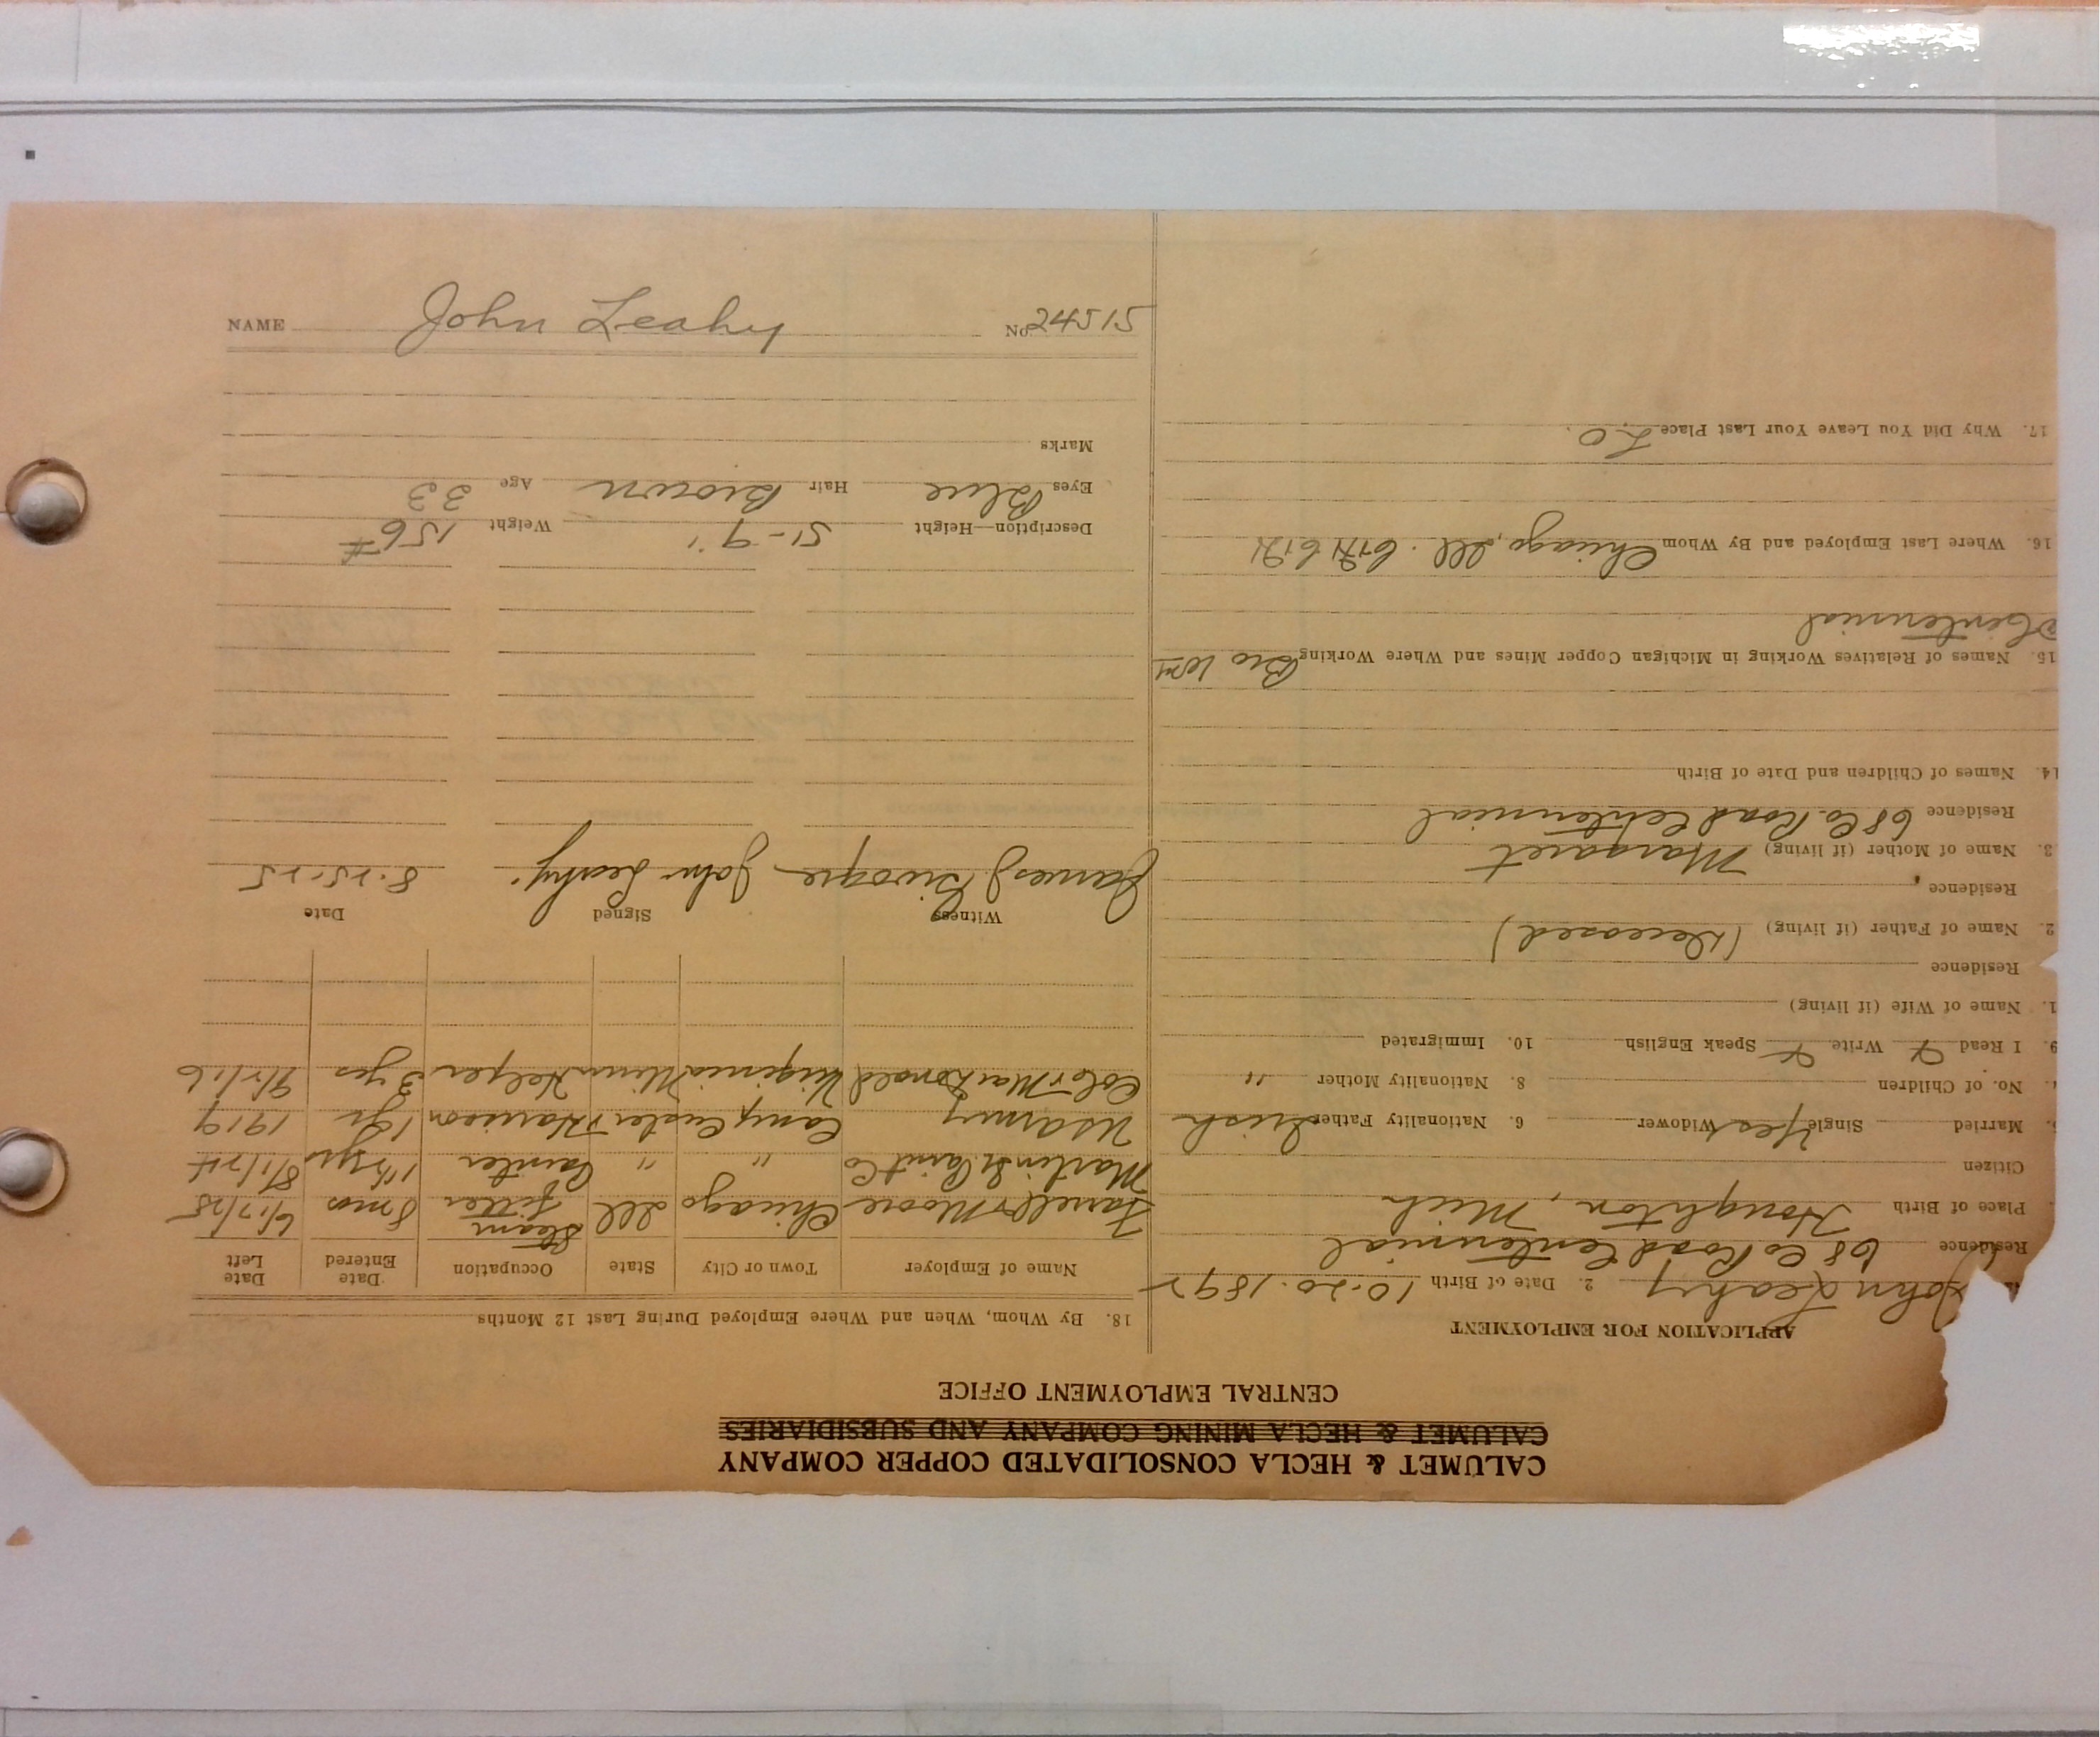 CALUMET & HECLA CONSOLIDATED COPPER COMPANY
CALUMET & HECLA MINING COMPANY AND SUBSIDIARIES
CENTRAL EMPLOYMENT OFFICE
APPLICATION FOR EMPLOYMENT
John Leahy 2. Date of Birth 10-20-1892
Residence 68 Co Road Centennial
Place of Birth Houghton, Mich
Citizen
Married Single Yes Widower 6. Nationality Father Irish
No. of Children 8. Nationality Mother "
9. I Read Write Speak English 10. Immigrated
1. Name of Wife (if living)
Residence
2. Name of Father (if living) (Deceased)
Residence
3. Name of Mother (if living) Margaret
Residence 68 Co. Road Centennial
14. Names of Children and Date of Birth
15. Names of Relatives Working in Michigan Copper Mines and Where Working Bro Wm
Centennial
16. Where Last Employed and By Whom Chicago, Ill.
17. Why Did You Leave Your Last Place L.O.
18. By Whom, When and Where Employed During Last 12 Months
Name of Employer Town or City State Occupation Date Entered Date Left
Farrell & Moore Chicago Ill Steam fitter 8 mos 6/17/25
Martin Paint Co " " Painter 1 1/2 yrs 8/1/24
US Army Camp Custer 1 yr 1919
MacDonald Virginia Minn Helper 3 yrs
Witness Signed Date
James J John Leahy. 8-25-25
Description—Height 5'-9" Weight 156#
Eyes Blue Hair Brown Age 33
Marks
NAME John Leahy No. 24515